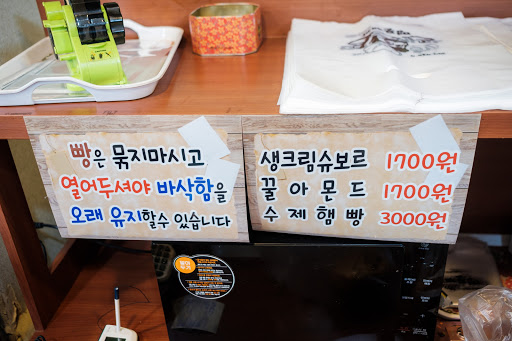 빵은 묶지마시고
열어두셔야 바삭함을
오래 유지할수 있습니다
생크림슈보르 1700원
꿀아몬드 1700원
수제햄빵 3000원